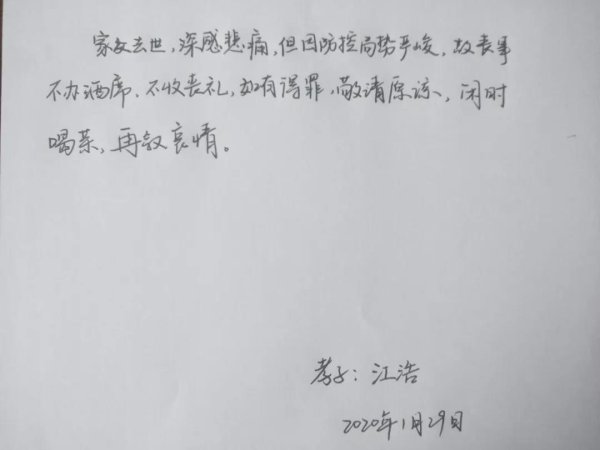 家父去世，深感悲痛，但因防控局势严峻，故丧事
不办酒席、不收丧礼，如有得罪，敬请原谅，闲时
喝茶，再叙哀情。
孝子：江浩
2020年1月29日